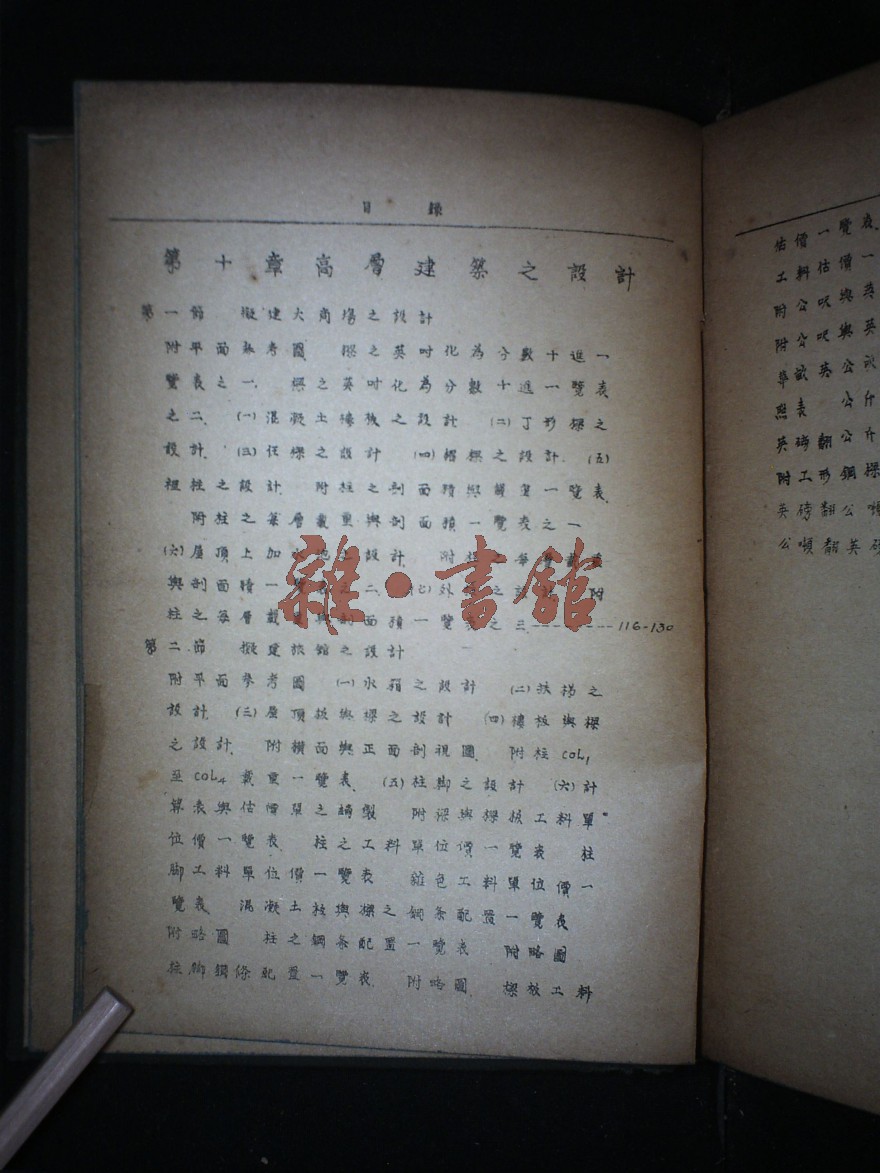 目 錄
第十章高層建築之設計
第一節 擬建大商場之設計
附平面參考圖 樑之英吋化為分數十進一
覽表之一. 樑之英吋化為分數十進一覽表
之二. (一)混凝土樓板之設計 (二)丁形樑之
設計. (三)任樑之設計 (四)楣樑之設計. (五)
裡柱之設計. 附柱之剖面積與載重一覽表.
附柱之每層載重與剖面積一覽表之一
(六)屋頂上加水池之設計. 附柱之每層載重
與剖面積一覽表之二 (七)外柱之設計 附
柱之每層載重與剖面積一覽表之三 --------- 116-130
第二節 擬建旅館之設計
附平面參考圖 (一)水箱之設計 (二)扶梯之
設計. (三)屋頂板與樑之設計 (四)樓板與樑
之設計. 附橫面與正面剖視圖. 附柱COL1
至COL4載重一覽表. (五)柱脚之設計 (六)計
算表與估價單之編製 附樑與樑板工料單
位價一覽表. 柱之工料單位價一覽表 柱
脚工料單位價一覽表 雜色工料單位價一
覽表. 混凝土板與樑之鋼条配置一覽表
附略圖 柱之鋼条配置一覽表 附略圖
柱脚鋼條配置一覽表. 附略圖. 樑板工料
估價一覽表.
工料估價一
附公呎與英
附公呎與英
華畝英公畝
照表 公斤
英磅翻公斤
附工形鋼樑
英磅翻公噸
公噸翻英磅
雜·書館